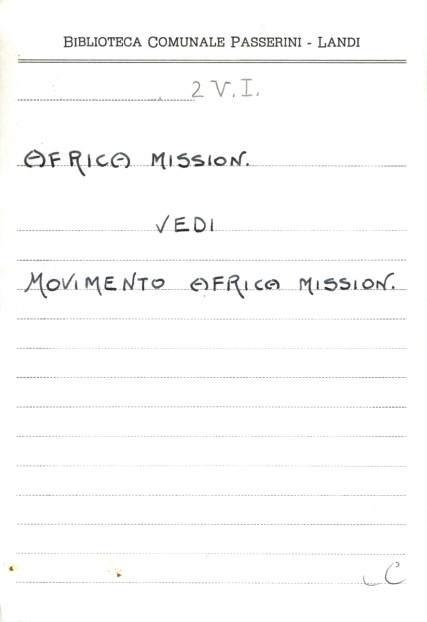 BIBLIOTECA COMUNALE PASSERINI - LANDI
2 V.I.
AFRICA MISSION.
VEDI
MOVIMENTO AFRICA MISSION.
C